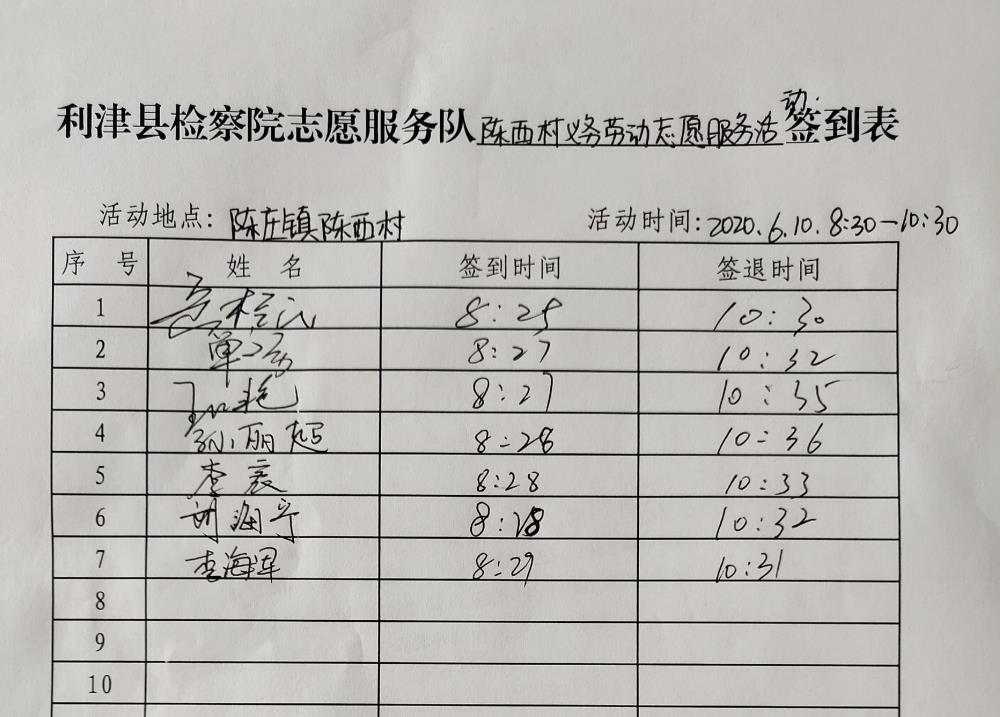 利津县检察院志愿服务队陈西村义务劳动志愿服务活动签到表
活动地点：陈庄镇陈西村 活动时间：2020.6.10. 8:30—10:30
序号 姓名 签到时间 签退时间
1 8:25 10:30
2 8:27 10:32
3 8:27 10:35
4 孙丽超 8:28 10:36
5 李 8:28 10:33
6 8:28 10:32
7 李海军 8:29 10:31
8
9
10